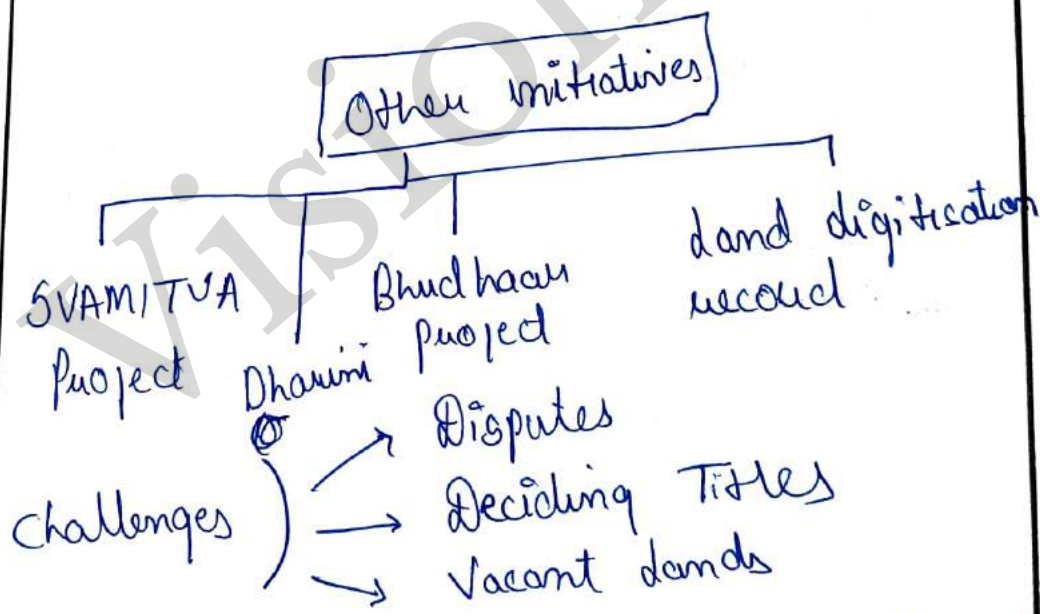 Other initiatives
SVAMITVA Project
Dharini
Bhudhaar project
Land digitisation record
Challenges
Disputes
Deciding Titles
Vacant Lands
Vision